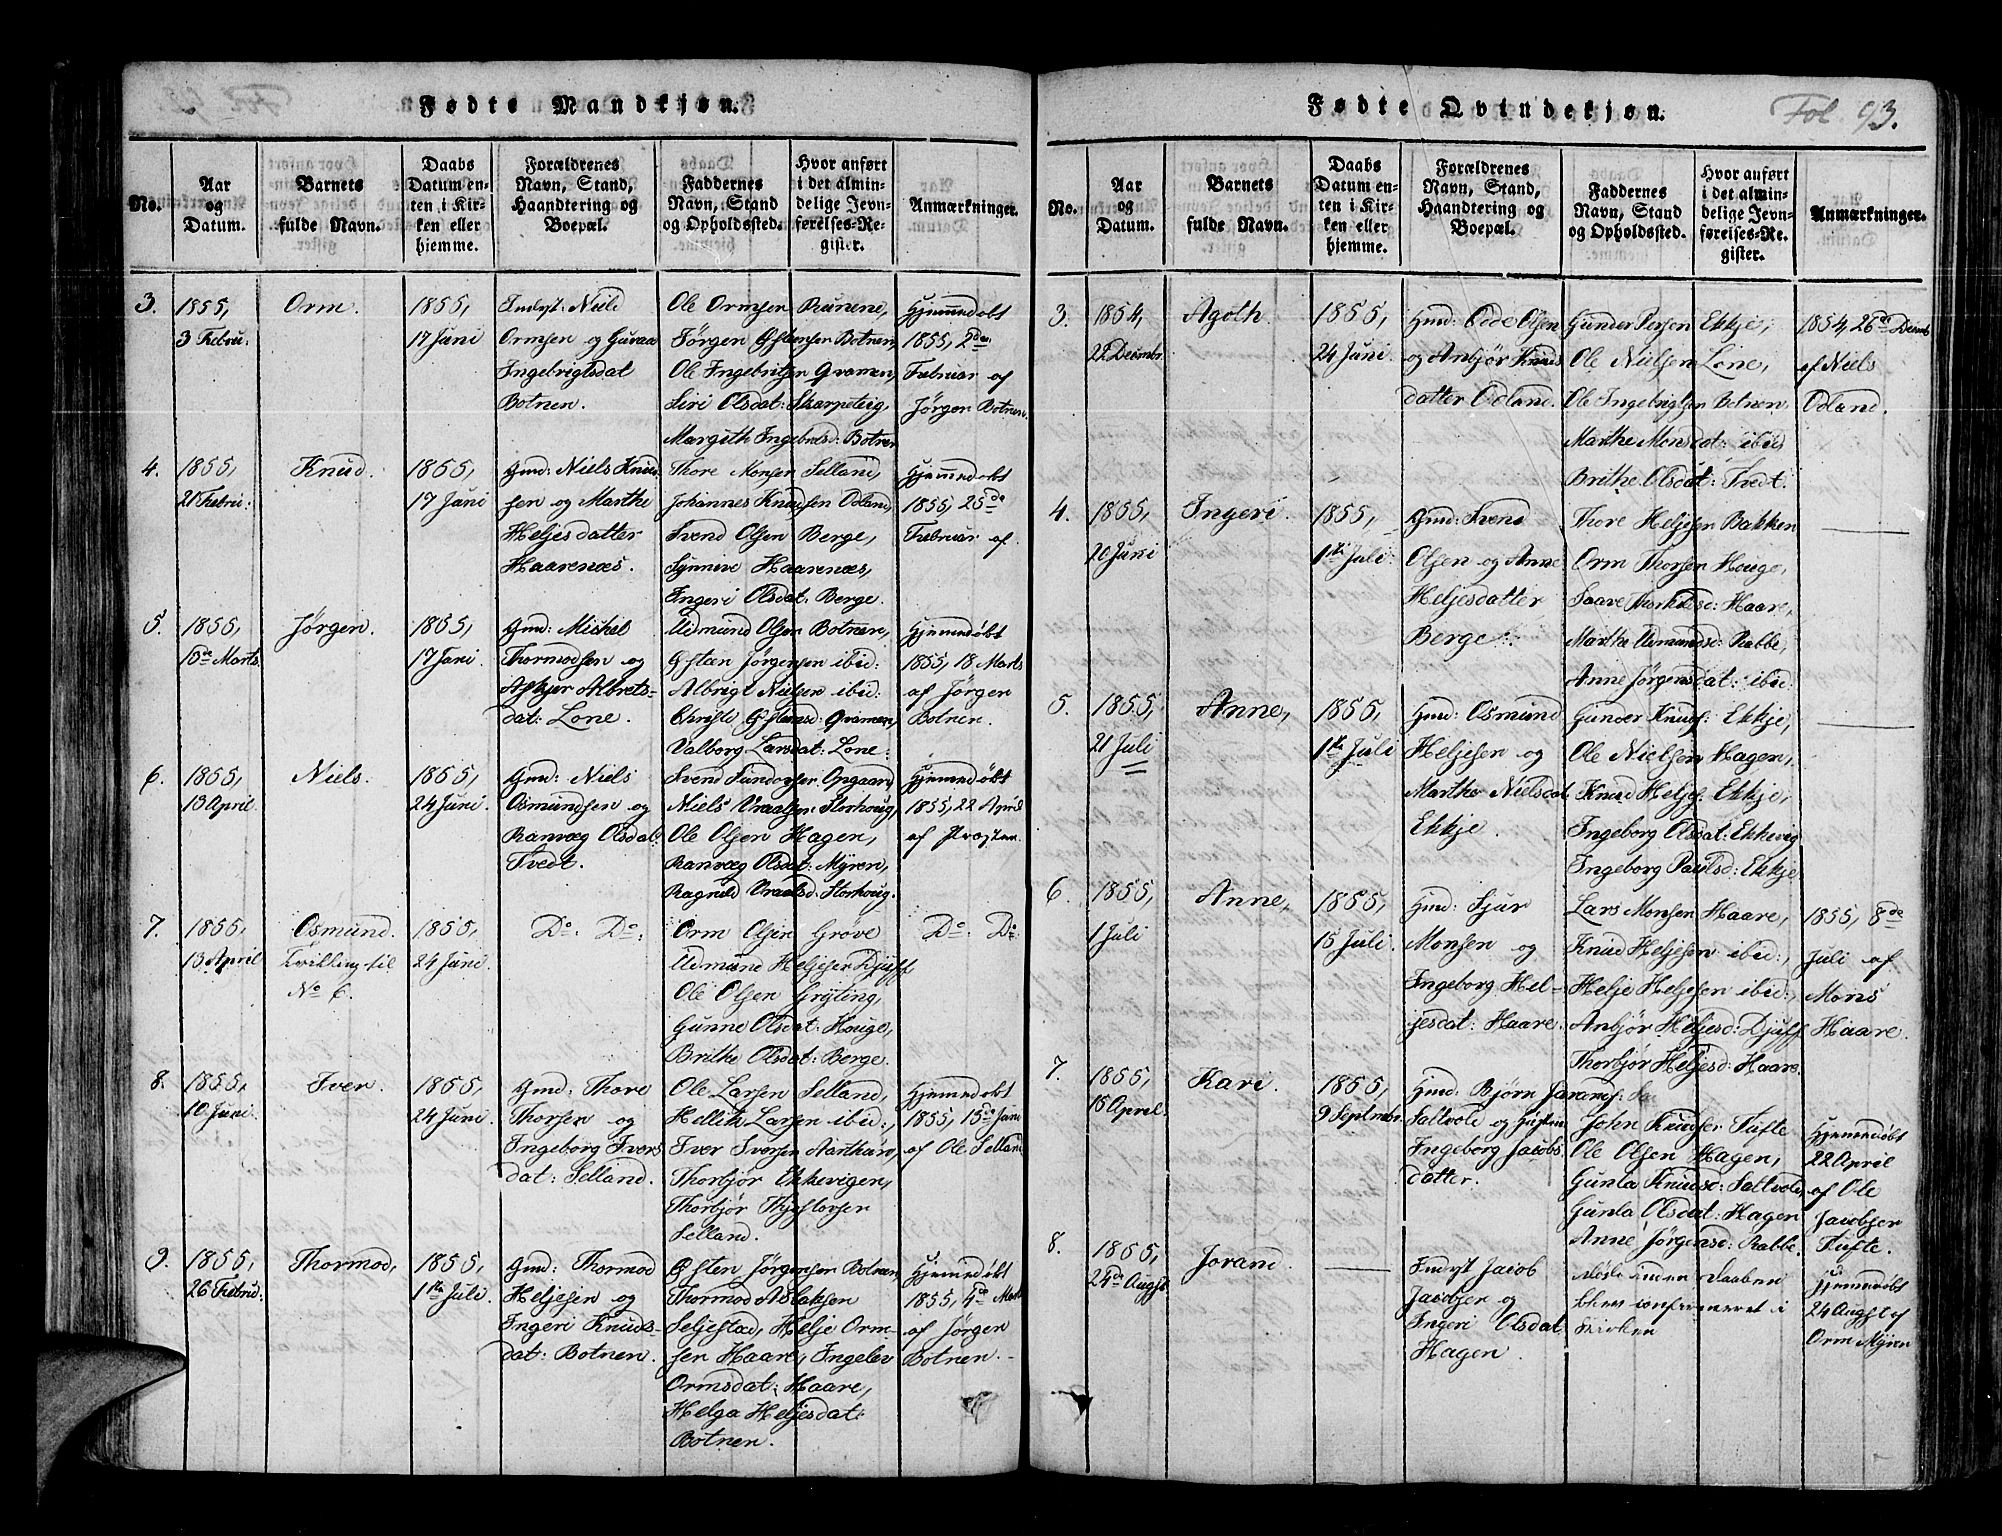 Fødte Mandkjøn.
No.
Aar
og
Datum.
Barnets
fulde Navn.
Daabs
Datum en-
ten i Kir-
ken eller
hjemme.
Forældrenes
Navn, Stand,
Haandtering og
Boepæl.
Faddernes
Navn, Stand
og Opholdssted.
Hvor anført
i det almin-
delige Jevn-
førelses-Re-
gister.
Anmærkninger.
3.
1855,
3 Febru:
Orm.
1855,
17 Juni
Indgt: Niels
Ormsen og Guroe
Ingebrigtsdat
Botnen.
Ole Ormsen Runene,
Jørgen Østensen Botnen,
Ole Ingebritsen Qvamen,
Siri Olsdat: Skarpeteig,
Margith Ingebretsd: Botnen
Hjemmedøbt
1855, 2den
Februar af
Jørgen Botnen.
4.
1855,
21 Febru:
Knud.
1855,
17 Juni
Gmd: Niels Knud
sen og Marthe
Heljesdatter
Haarenæs.
Thore Monsen Selland,
Johannes Knudsen Odland,
Svend Olsen Berge,
Synneve Haarenæs,
Ingeri Olsdat: Berge.
Hjemmedøbt
1855, 25de
Februar af
5.
1855,
10de Marts.
Jørgen.
1855,
17 Juni.
Gmd: Mickel
Thormodsen og
Askjer Albrets-
dat: Lone.
Udmund Olsen Botnen,
Østen Jørgensen ibid:
Albrigt Nielsen ibid:
Christi Østensd: Qvamen,
Valborg Larsdat: Lone:
Hjemmedøbt
1855, 18 Marts
af Jørgen
Botnen.
6.
1855,
13 April.
Niels.
1855,
24 Juni.
Gmd: Niels
Osmundsen og
Ranvæg Olsdat:
Tvedt.
Svend Sundorsen Opgaard,
Niels Vraalsen Storhoug,
Ole Olsen Hagen,
Ranvæg Olsdat: Mÿren,
Ragnild Vraalsd: Storhoug.
Hjemmedøbt
1855, 22 April
af Præsten.
7.
1855,
13 April
Osmund.
Tvilling til
No 6.
1855,
24 Juni.
Do: Do:
Orm Olsen Grøve
Udmund Heljesen Djuff
Ole Olsen Grÿting,
Gunne Olsdat: Houge,
Brithe Olsdat: Berge.
Do: Do:
8.
1855,
10 Juni.
Iver.
1855,
24 Juni.
Gmd: Thore
Thorsen og
Ingeborg Ivers
dat: Selland.
Ole Larsen Selland,
Hellik Larsen ibid:,
Iver Iversen Narthun,
Thorbjør Ekkevigen,
Thorbjør Thjostolvsen
Selland.
Hjemmedøbt
1855, 15de Juni
af Ole Selland.
9.
1855,
26 Febru:
Thormod,
1855,
1ste Juli.
Gmd: Thormod
Heljesen og
Ingeri Knuds-
dat: Botnen.
Østen Jørgensen Botnen,
Thormod Aslaksen
Seljestad, Helje Orm-
sen Haare, Ingelev
Ormsdat: Haare,
Helga Heljesdat:
Botnen.
Hjemmedøbt
1855, 4de Marts
af Jørgen
Botnen.
Fødte Qvindekjøn.
Fol 93.
No.
Aar
og
Datum.
Barnets
fulde Navn.
Daabs
Datum en-
ten i Kir-
ken eller
hjemme.
Forældrenes
Navn, Stand,
Haandtering og
Boepæl.
Faddernes
Navn, Stand
og Opholdssted.
Hvor anført
i det almin-
delige Jevn-
førelses-Re-
gister.
Anmærkninger.
3.
1854,
22 Decmbr.
Agoth.
1855,
24 Juni.
Gmd: Odd Olsen
og Anbjør Knuds
datter Odland.
Gunder Persen Ekkje,
Ole Nielsen Lone,
Ole Ingebrigtsen Botnen,
Marthe Monsdat: ibid
Brithe Olsdat: Tvedt.
1854, 26de Decmb
af Niels
Odland.
4.
1855,
20 Juni
Ingeri.
1855,
1ste Juli.
Gmd: Svend
Olsen og Anne
Heljesdatter
Berge.
Thore Heljesen Bakken
Orm Thorsen Houge,
Saave Thorkilsd: Haare,
Marthe Udmundsd: Rabbe,
Anne Jørgensdat: ibid:
5.
1855,
21 Juli
Anne,
1855,
1ste Juli
Gmd: Osmund
Heljesen og
Marthe Nielsdat
Ekkje.
Gunder Knuds: Ekkje,
Ole Nielsen Hagen,
Knud Heljes: Ekkje,
Ingeborg Olsdat: Ekkevig
Ingeborg Paulsd: Ekkje
6.
1855,
1 Juli
Anne,
1855,
15 Juli.
Gmd: Sjur
Monsen og
Ingeborg Hel-
jesdat: Haare.
Lars Monsen Haare,
Knud Heljesen ibid:,
Helje Heljesen ibid:,
Anbjør Heljesd: Djuff
Thorbjør Heljesd: Haare.
1855, 8de
Juli af
Mons
Haare.
7.
1855,
15 April.
Kari.
1855,
9 Septmbr.
Gmd: Bjørn Jarands:
Saltvold og Hustru
Ingeborg Jacobs
datter.
John Knudsen Tufte
Ole Olsen Hagen,
Gunla Knudsd: Saltvold,
Gunla Olsdat: Hagen
Anne Jørgensd: Rabbe.
Hjemmedøbt
22 April
af Ole
Jacobsen
Tufte.
8.
1855,
24de Augst
Jorand.
Indgst Jacob
Jacobsen og
Ingeri Olsdat
Hagen.
Døde inden Daaben
blev confirmeret i
Kirken
Hjemmedøbt
24 Augst af
Orm Mÿren